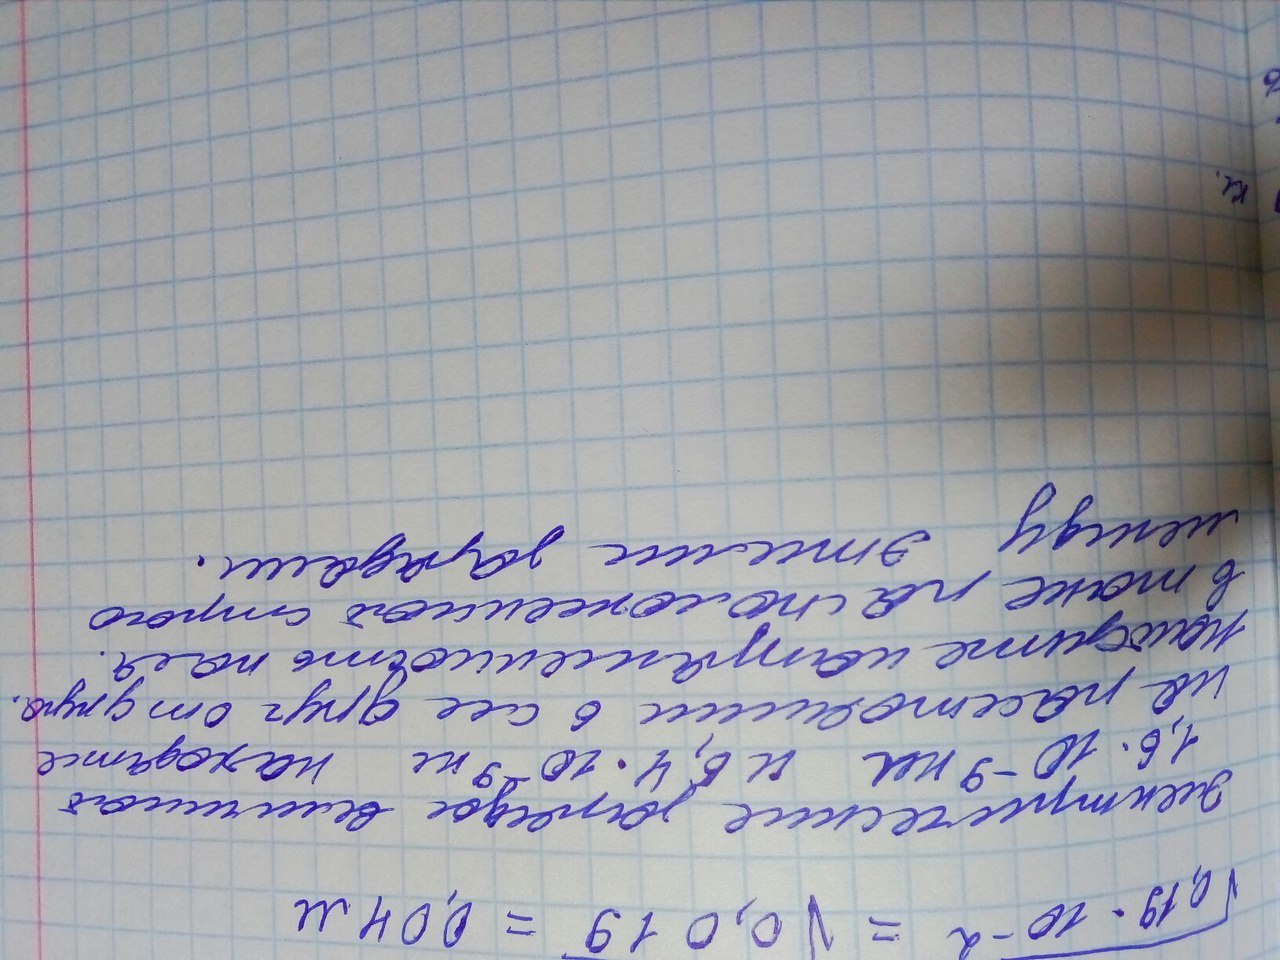 √0,19 · 10⁻² = √0,019 = 0,04 м
Электрические заряды величиной
1,6 · 10⁻⁹ кл и 6,4 · 10⁻⁹ кл находятся
на расстоянии 6 см друг от друга.
Найдите напряженность поля.
в точке расположенной строго
между этими зарядами.
кл.